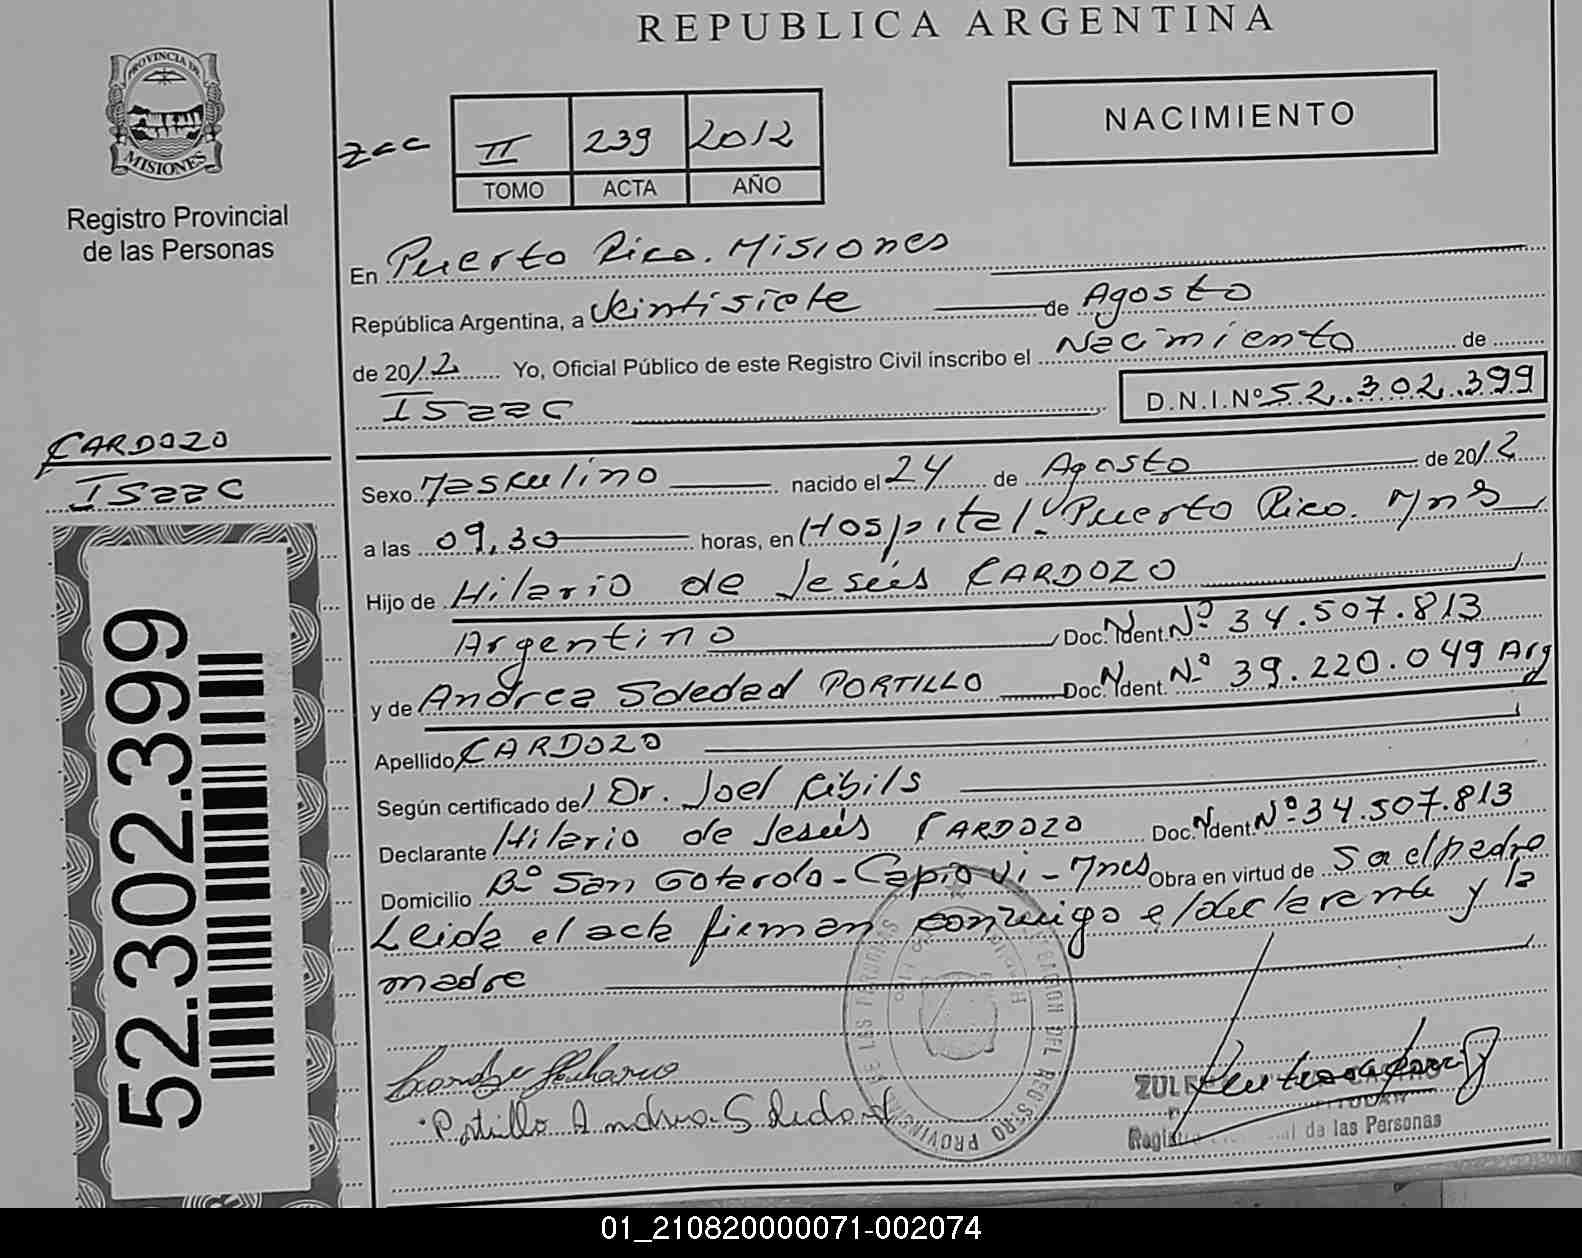 REPUBLICA ARGENTINA
PROVINCIA DE
MISIONES
Registro Provincial
de las Personas
II 239 2012
TOMO ACTA AÑO
NACIMIENTO
En Puerto Rico. Misiones
República Argentina, a Veintisiete de Agosto
de 2012 Yo, Oficial Público de este Registro Civil inscribo el Nacimiento de
Isaac D.N.I.Nº 52.302.399
CARDOZO
Isaac
52.302.399
Sexo Maskulino nacido el 24 de Agosto de 2012
a las 09,30 horas, en Hospital. Puerto Rico. Mns
Hijo de Hilario de Jesús CARDOZO
Argentino Doc. Ident. Nº 34.507.813
y de Andrea Soledad PORTILLO Doc. Ident. Nº 39.220.049 Arg
Apellido CARDOZO
Según certificado de Dr. Joel Ribils
Declarante Hilario de Jesús CARDOZO Doc. Ident. Nº 34.507.813
Domicilio Bº San Goterdo - Capiovi - Mnes Obra en virtud de Sa el padre
Leida el acta firman conmigo el declarente y la
madre
Portillo Andrea Soledad
de las Personas
01_210820000071-002074